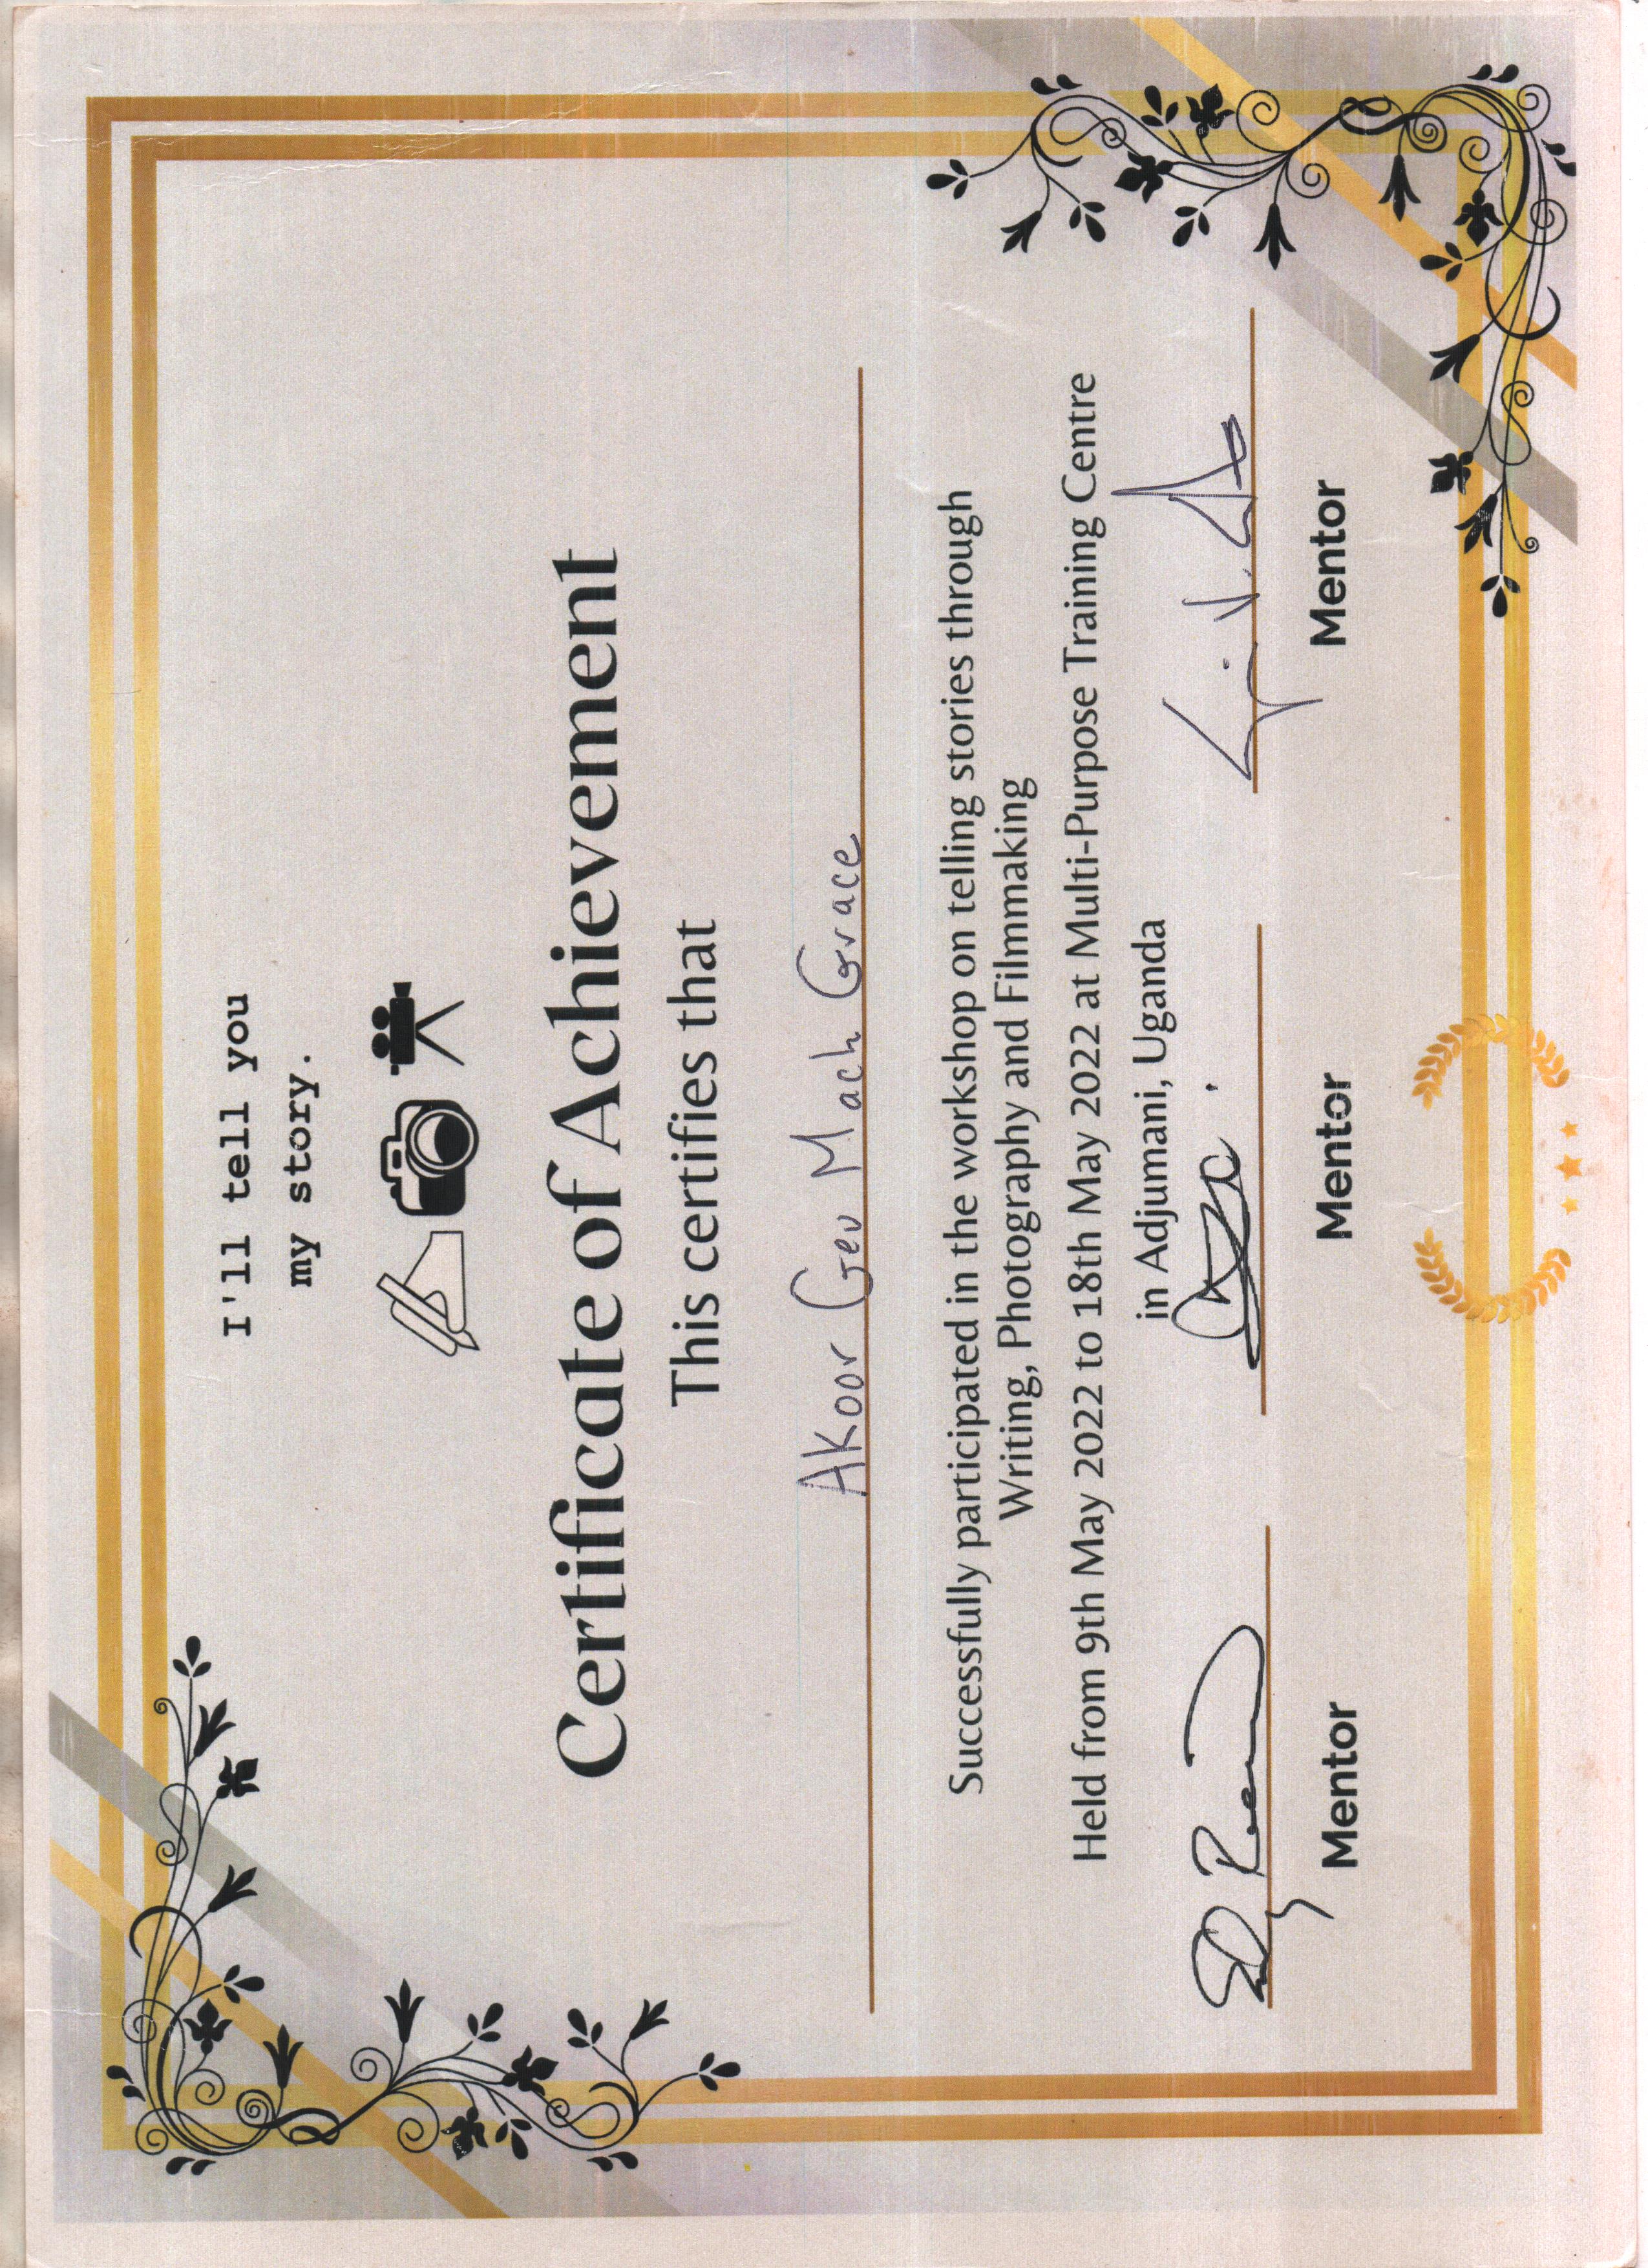 I'll tell you
my story.
Certificate of Achievement
This certifies that
Akoor Geu Mach Grace
Successfully participated in the workshop on telling stories through
Writing, Photography and Filmmaking
Held from 9th May 2022 to 18th May 2022 at Multi-Purpose Training Centre
in Adjumani, Uganda
Mentor
Mentor
Mentor